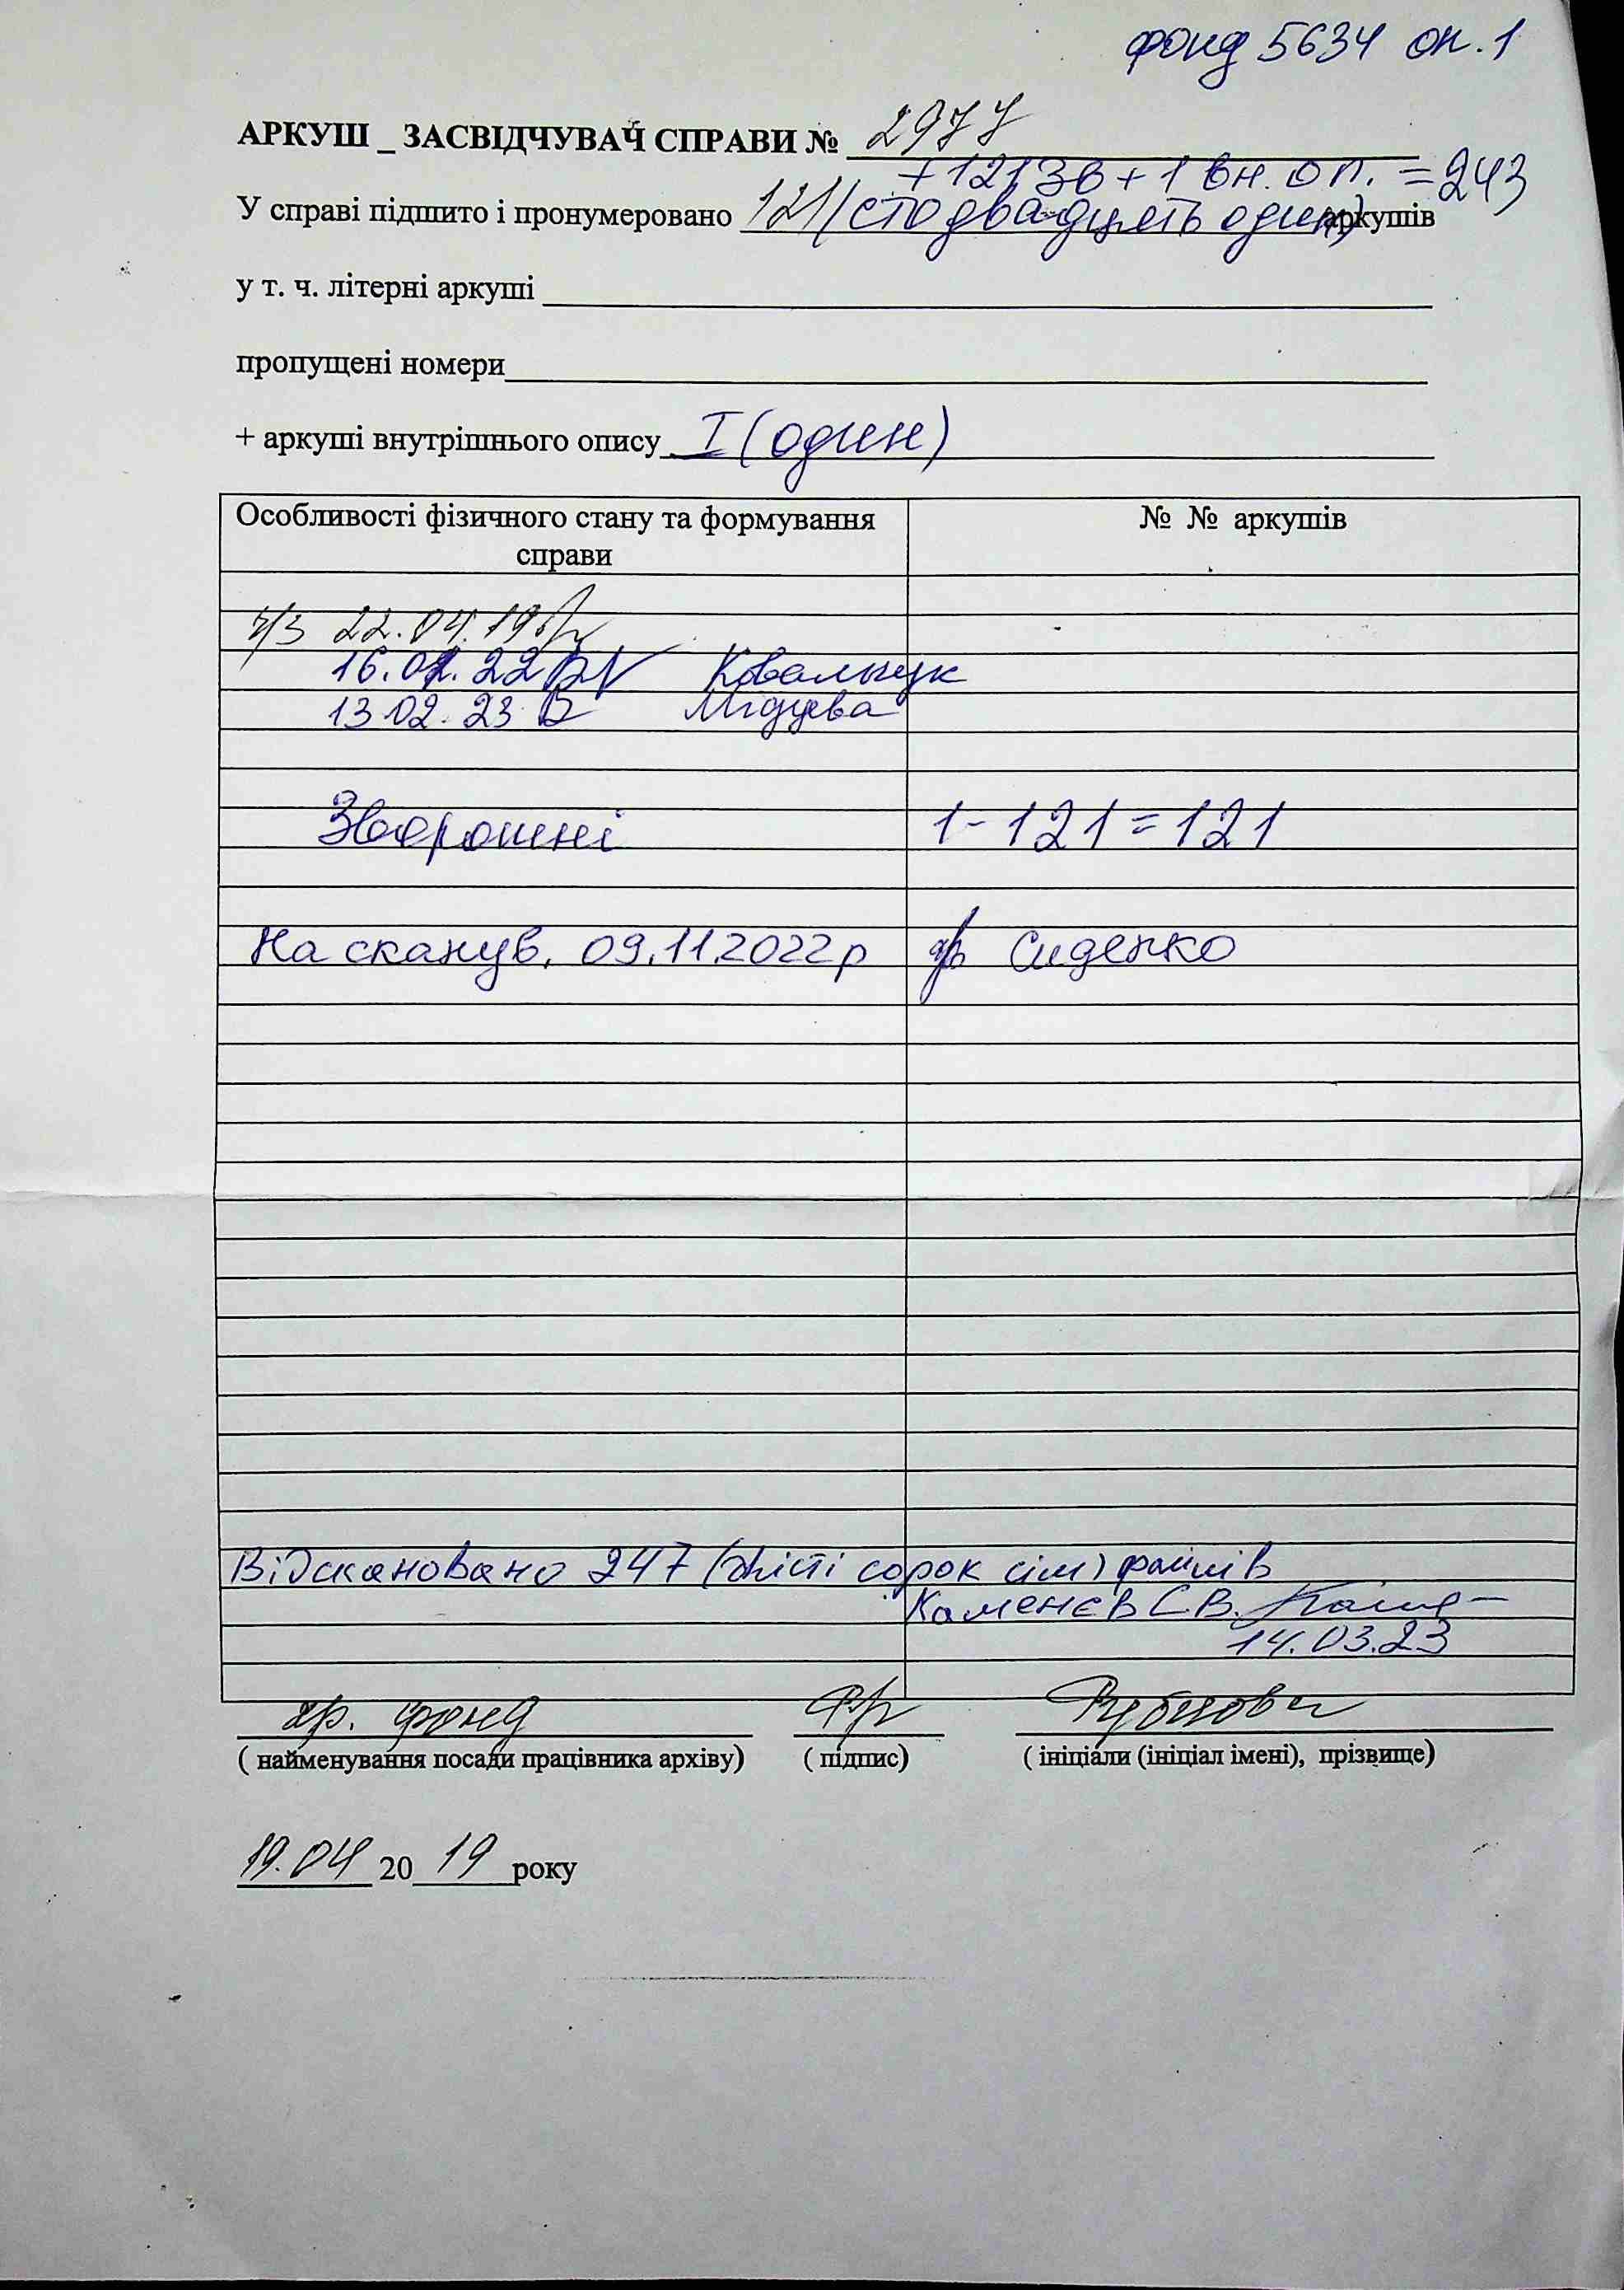 фонд 5634 оп. 1
АРКУШ _ ЗАСВІДЧУВАЧ СПРАВИ № 2977
+ 121 зв + 1 вн. оп. = 243
У справі підшито і пронумеровано 121 (сто двадцять один) аркушів
у т. ч. літерні аркуші
пропущені номери
+ аркуші внутрішнього опису I (один)
Особливості фізичного стану та формування справи
№ № аркушів
22.04.19
16.02.22 Ковальчук
13.02.23
Звороти 1-121=121
На сканув. 09.11.2022р Сиденко
Відскановано 247 (двісті сорок сім) файлів
Каменєв С.В.
14.03.23
хр. фонд
( найменування посади працівника архіву) ( підпис) ( ініціали (ініціал імені), прізвище)
19.04 2019 року